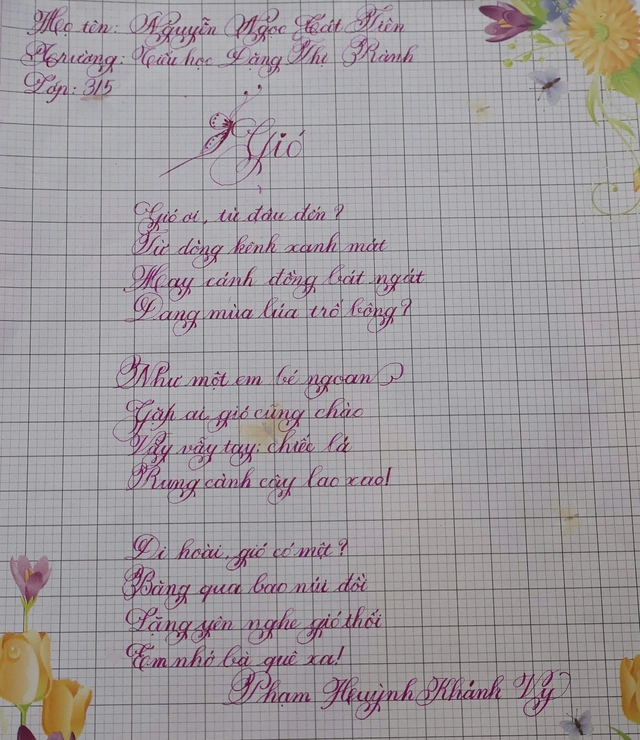 Họ tên: Nguyễn Ngọc Cát Tiên
Trường: Tiểu học Đặng Thị Rành
Lớp: 3/5
Gió
Gió ơi, từ đâu đến?
Từ dòng kênh xanh mát
Hay cánh đồng bát ngát
Đang mùa lúa trổ bông?
Như một em bé ngoan
Gặp ai, gió cũng chào
Vẫy vẫy tay: chiếc lá
Rung cành cây lao xao!
Đi hoài, gió có mệt?
Băng qua bao núi đồi
Lặng yên nghe gió thổi
Em nhớ bà quê xa!
Phạm Huỳnh Khánh Vy